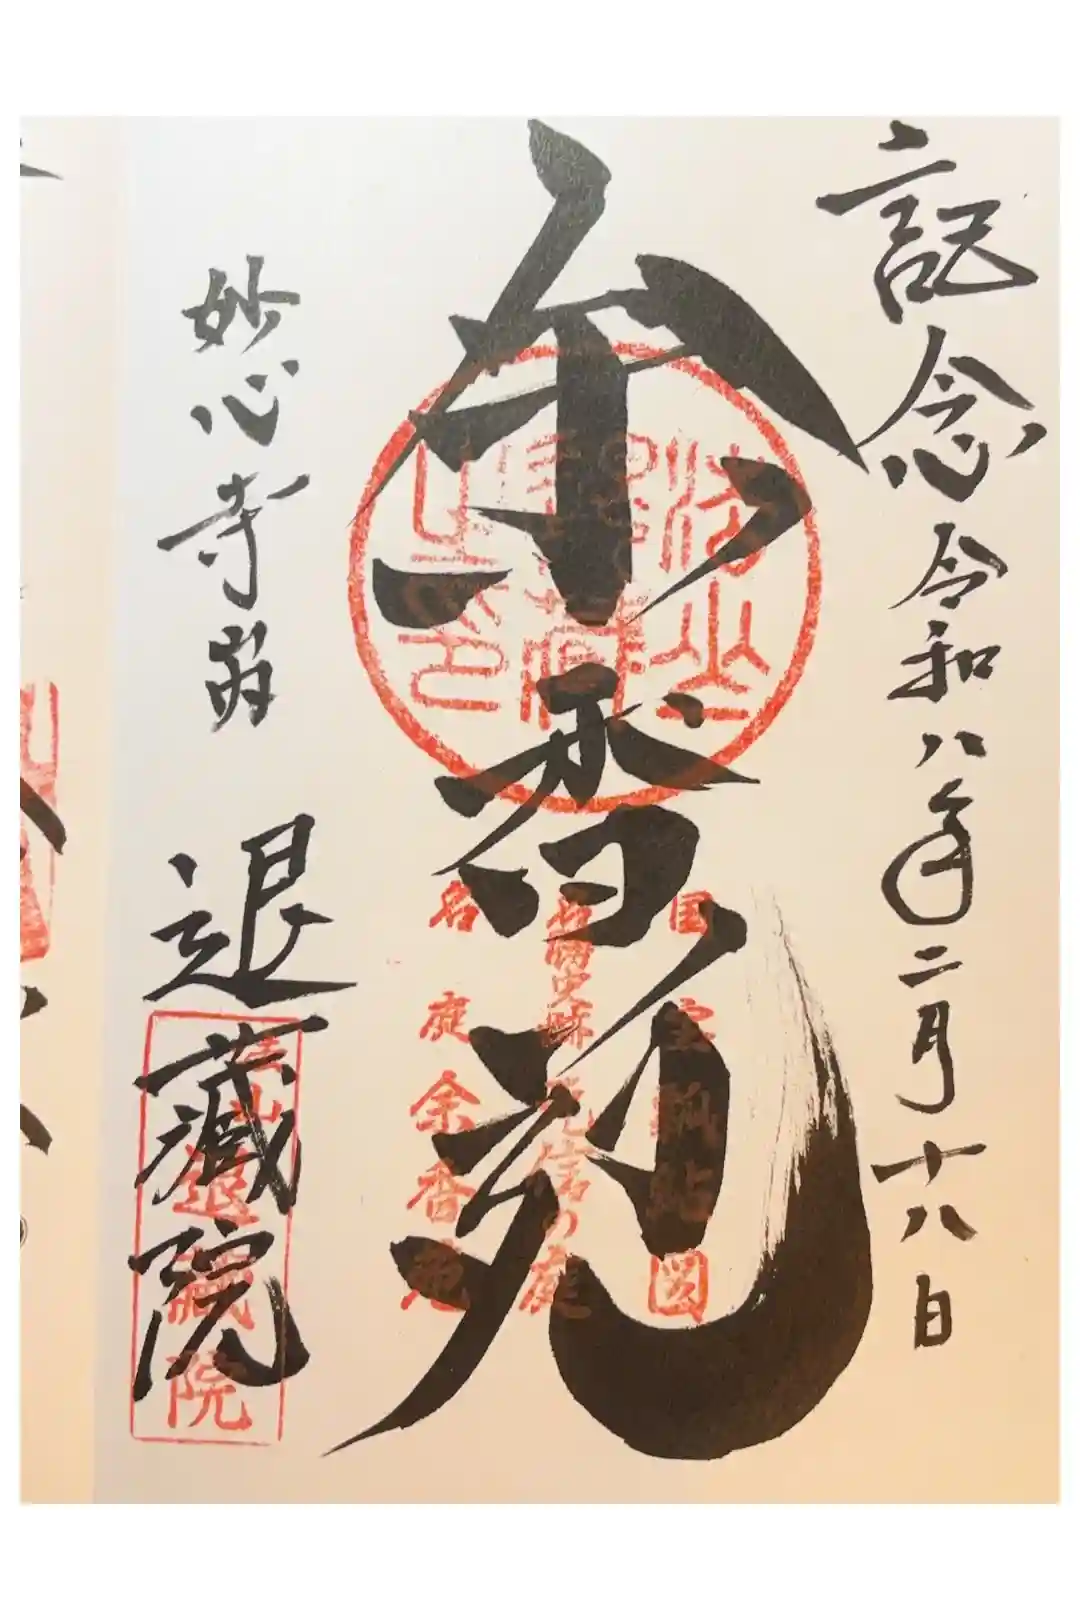 記念 令和八年二月十八日
余香苑
国宝瓢鮎図
名勝史跡 元信の庭
名庭余香苑
妙心寺
退蔵院
退蔵院